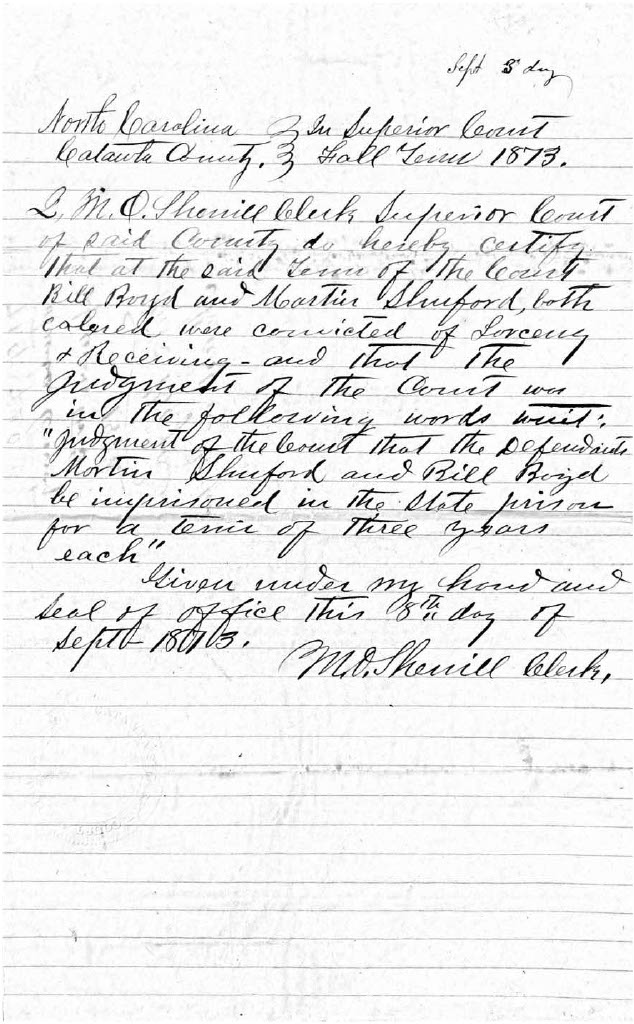 Sept 3 day
North Carolina } In Superior Court
Catawba County. } Fall Term 1873.
I, M. O. Sherrill Clerk Superior Court
of said County do hereby certify
that at the said Term of the Court
Bill Boyd and Martin Shuford, both
colored were convicted of Larceny
& Receiving - and that the
Judgment of the Court was
in the following words :
"Judgment of the Court that the Defendants
Martin Shuford and Bill Boyd
be imprisoned in the State prison
for a term of three years
each"
Given under my hand and
seal of office this 8th day of
Sept 1873.
M. O. Sherrill Clerk.